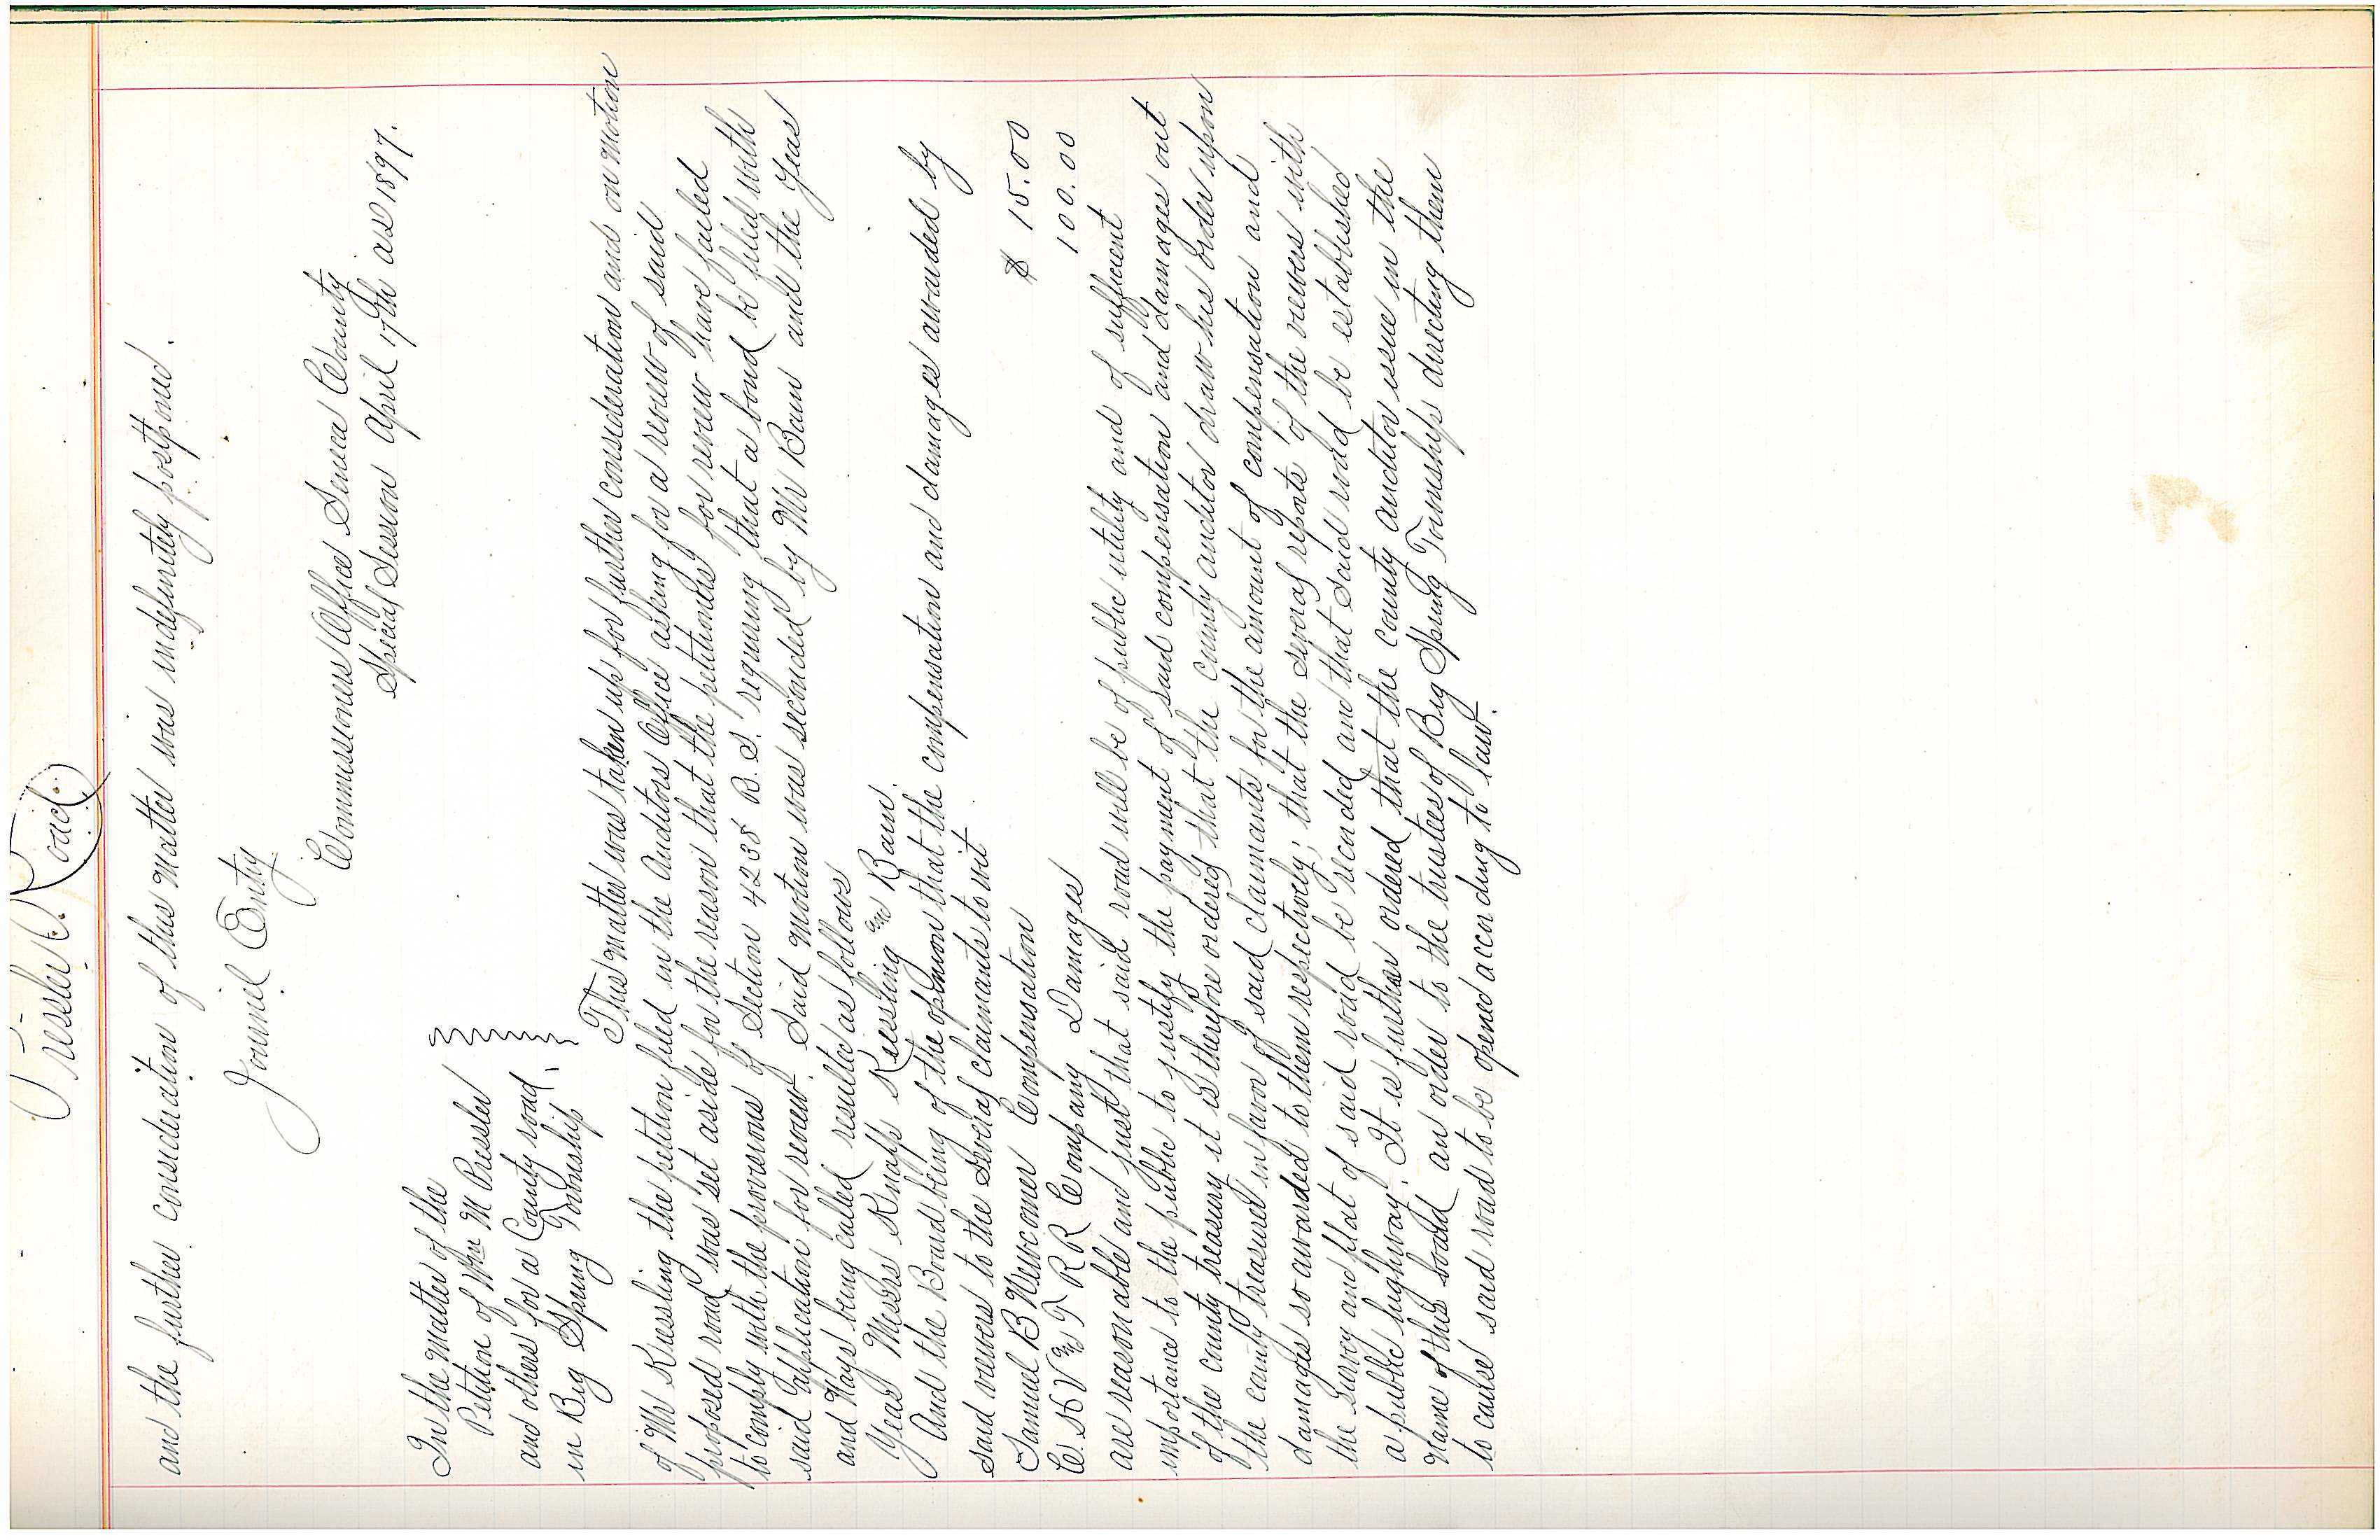 Pressler Road.
and the further consideration of this matter was indefinitely postponed.
Journal Entry
Commissioners Office Seneca County
Special Session April 17th AD 1897.
In the matter of the
Petition of Wm M Pressler
and others for a County road
in Big Spring Township
This matter was taken up for further consideration and on motion
of Mr Kiessling the petition filed in the Auditors Office asking for a review of said
proposed road was set aside for the reason that the petitioners for review have failed
to comply with the provisions of Section 4238 R.S. requiring that a bond be filed with
said application for review. Said motion was seconded by Mr Baum and the Yeas
and Nays being called resulted as follows
Yeas Messrs Knapp Kiessling and Baum.
And the Board being of the opinion that the compensation and damages awarded by
said viewers to the several claimants to wit
Samuel B Newcomer Compensation $ 15.00
C. H V and T R R Company Damages 100.00
are reasonable and just that said road will be of public utility and of sufficient
importance to the public to justify the payment of said compensation and damages out
of the county treasury it is therefore ordered that the county auditor draw his order upon
the county treasurer in favor of said claimants for the amount of compensation and
damages so awarded to them respectively; that the several reports of the viewers with
the survey and plat of said road be recorded and that said road be established
a public highway. It is further ordered that the county auditor issue in the
name of this board an order to the trustees of Big Spring Township directing them
to cause said road to be opened according to law.